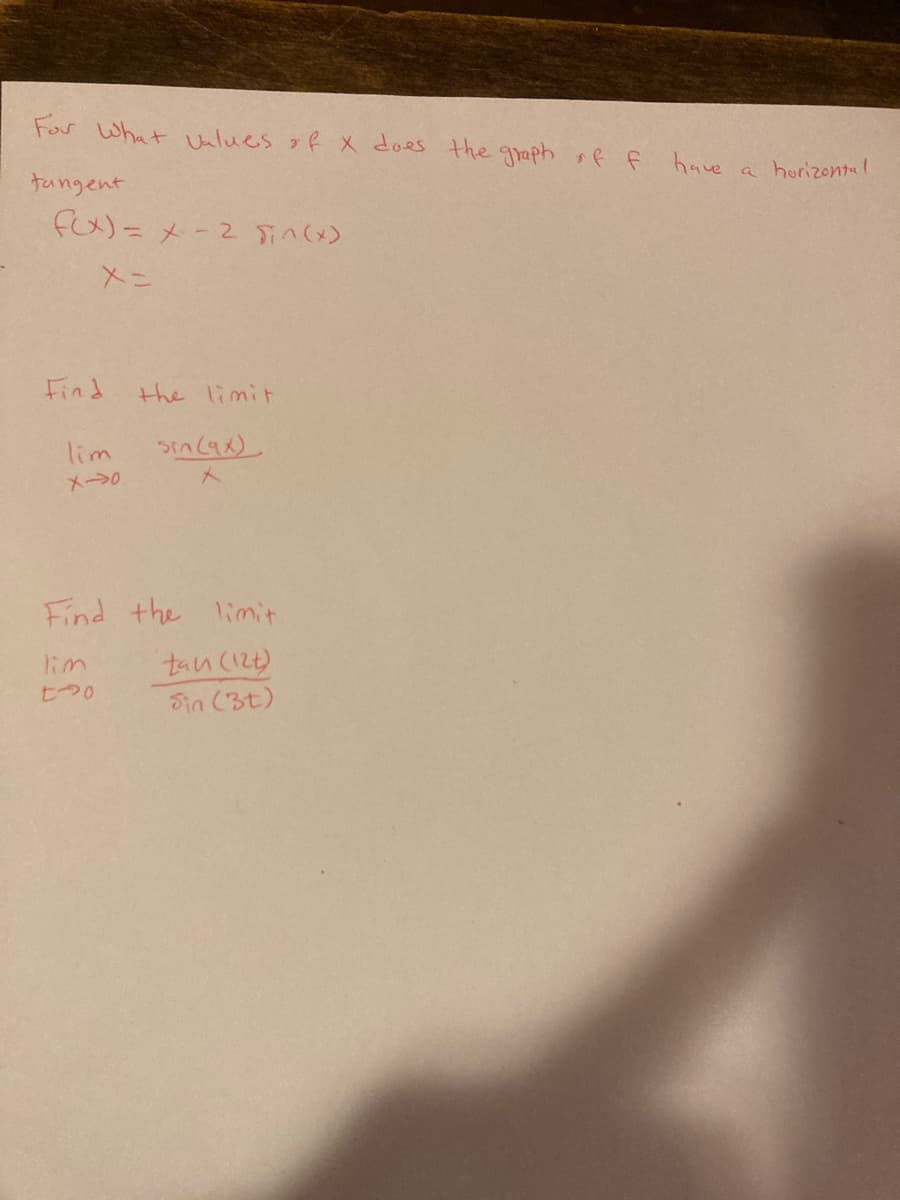 For What values of x does the graph of f have a horizontal
tangent
f(x) = x - 2 sin(x)
x =
Find the limit
lim sin(9x)
x→0 x
Find the limit
lim tan (12t)
t→0 sin (3t)